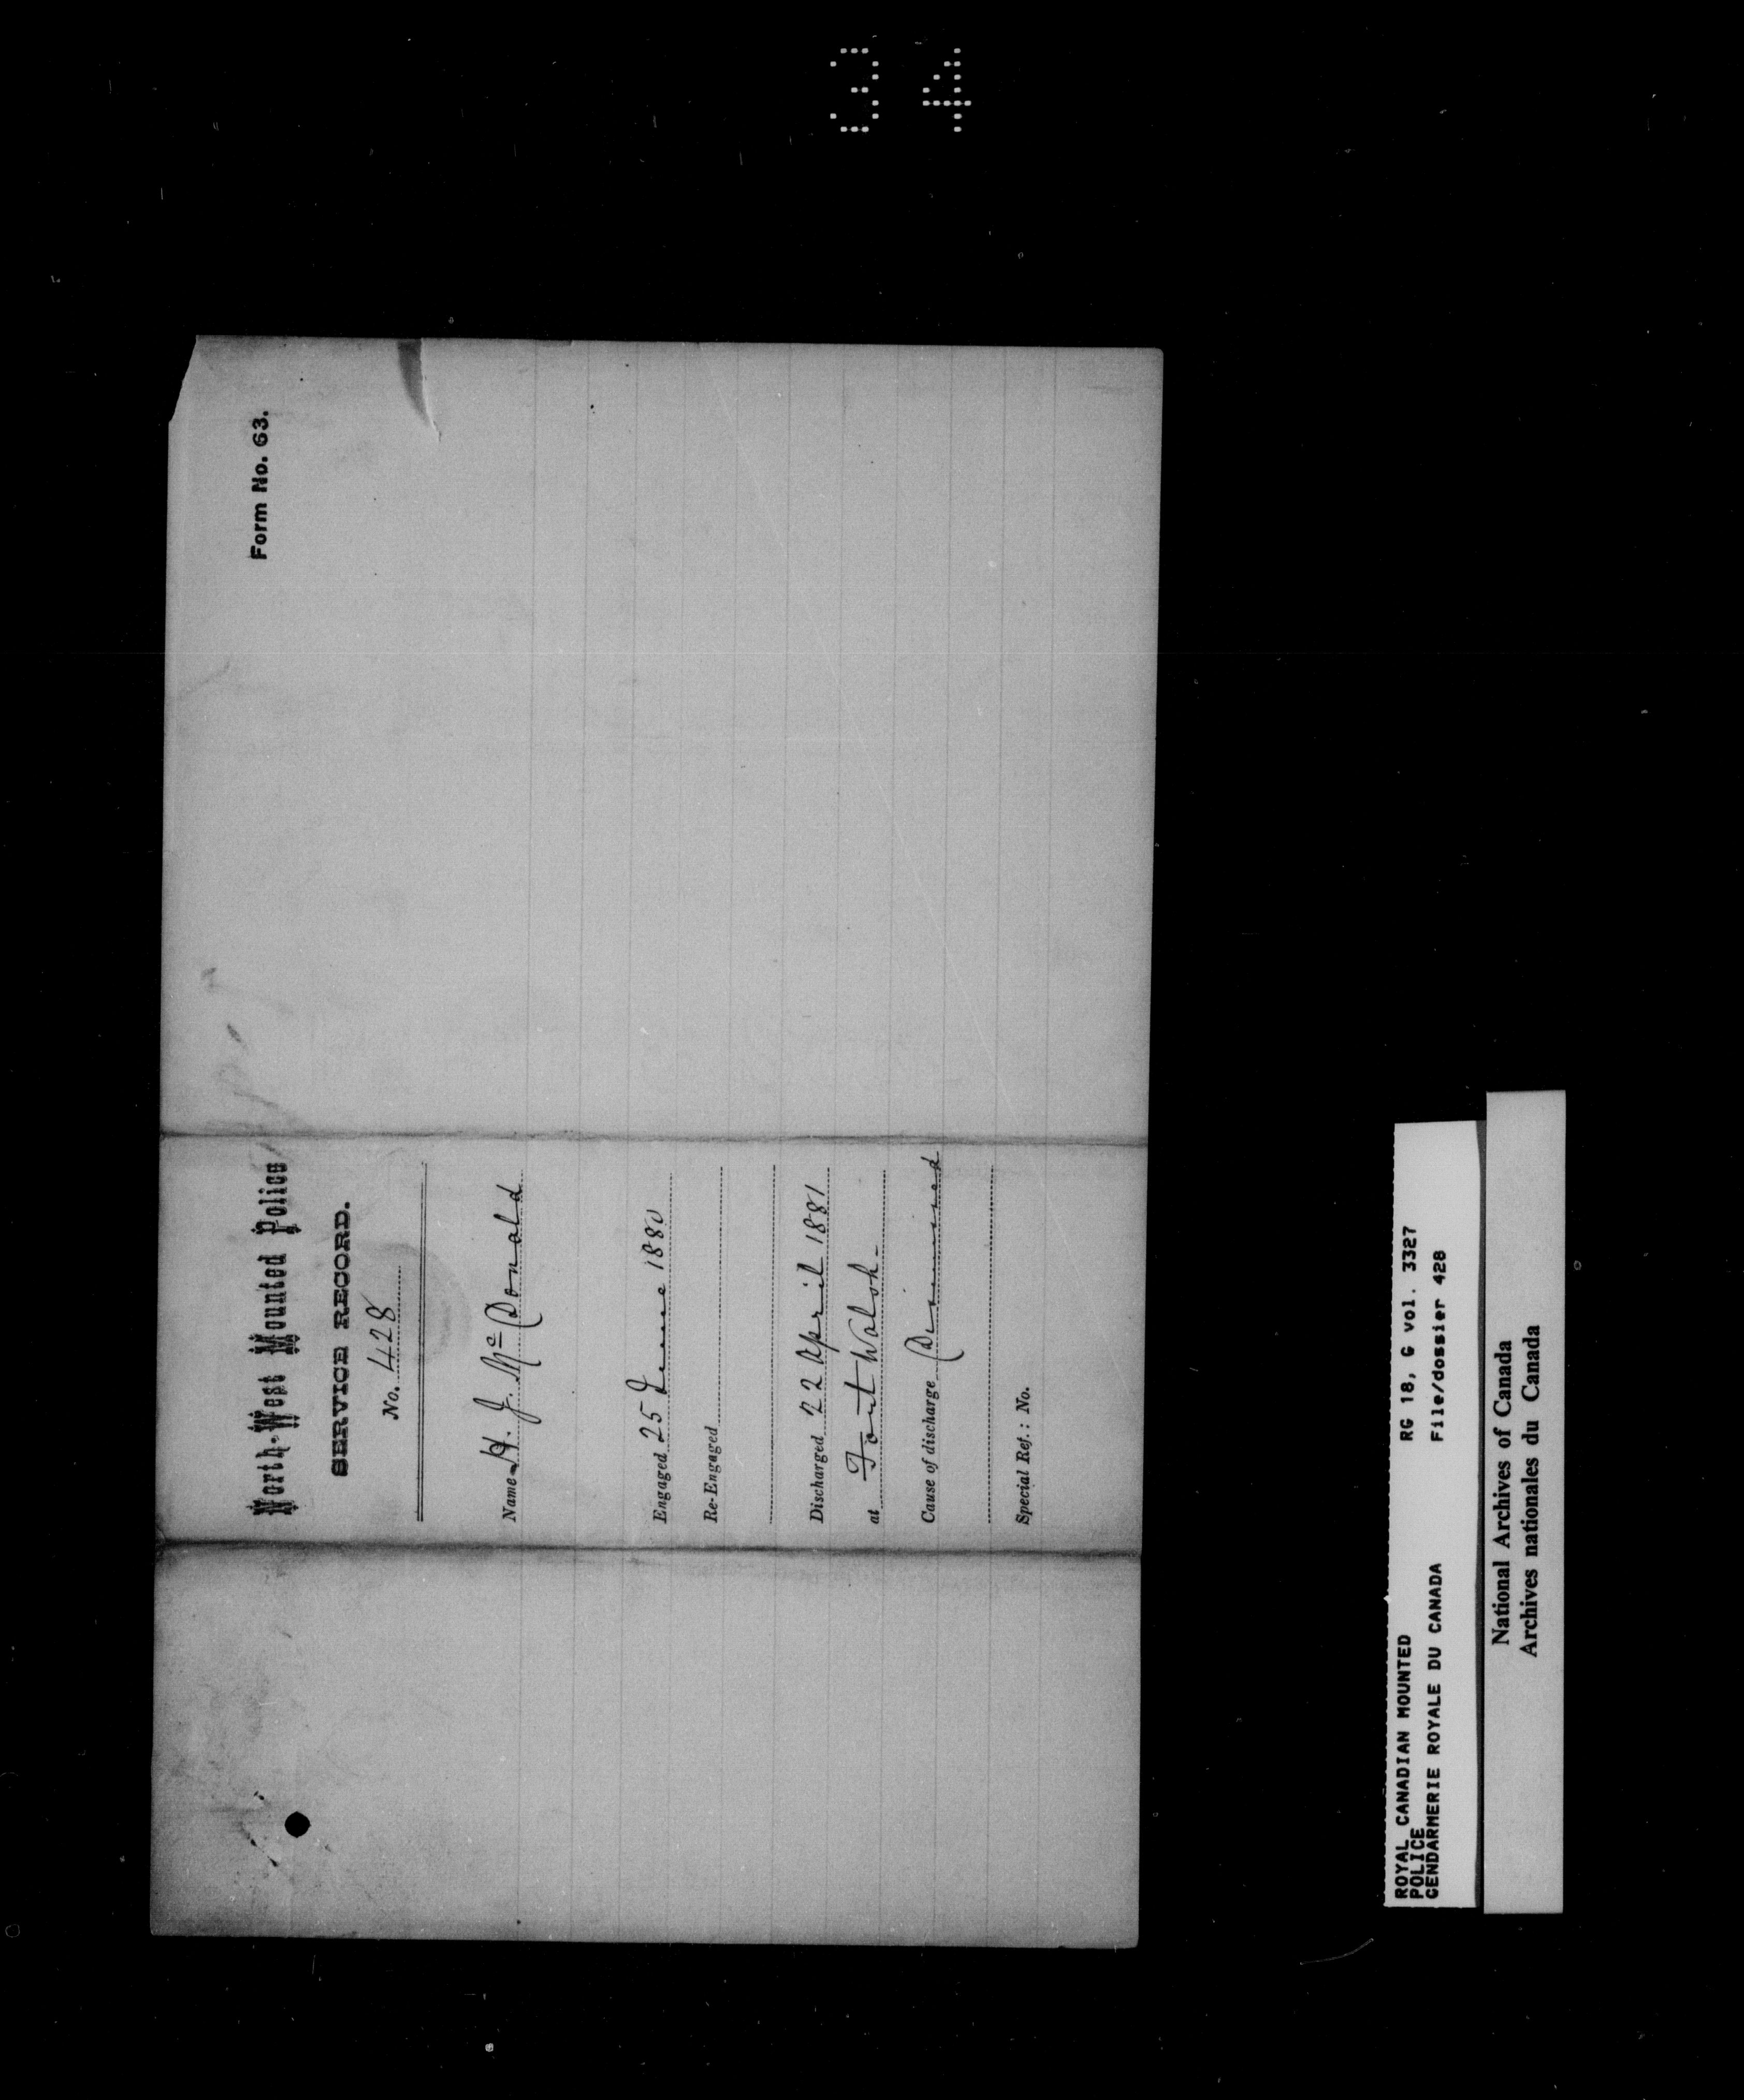 Form No. 63.
North-West Mounted Police
SERVICE RECORD.
No. 428
Name H. J. Mc Donald
Engaged 25 June 1880
Re-Engaged
Discharged 22 April 1881
at Fort Walsh-
Cause of discharge Dismissed
Special Ref.: No.
ROYAL CANADIAN MOUNTED
POLICE
GENDARMERIE ROYALE DU CANADA
RG 18, G vol. 3327
File/dossier 428
National Archives of Canada
Archives nationales du Canada